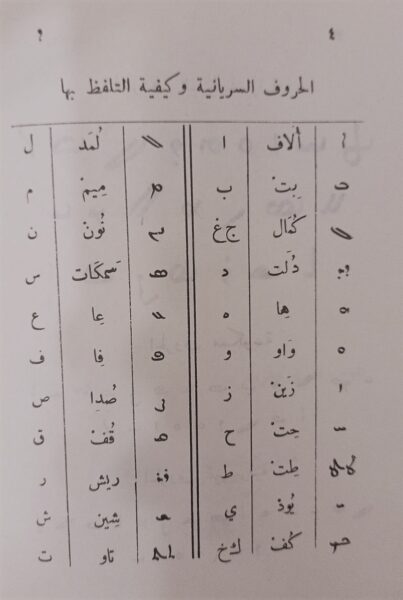 ٤ ܕ
الحروف السريانية وكيفية التلفظ بها
ܐ ألاف ا ܠ لُمَد ل
ܒ بِتْ ب ܡ مِيمْ م
ܓ كُمَال ج غ ܢ نُونْ ن
ܕ دُلَت د ܣ سَمكَات س
ܗ هِا ه ܥ عِا ع
ܘ وَاو و ܦ فِا ف
ܙ زَينْ ز ܨ صُدِا ص
ܚ حِتْ ح ܩ قُفْ ق
ܛ طِتْ ط ܪ رِيش ر
ܝ يُوذ ي ܫ شِين ش
ܟ كُفْ ك خ ܬ تاو ت